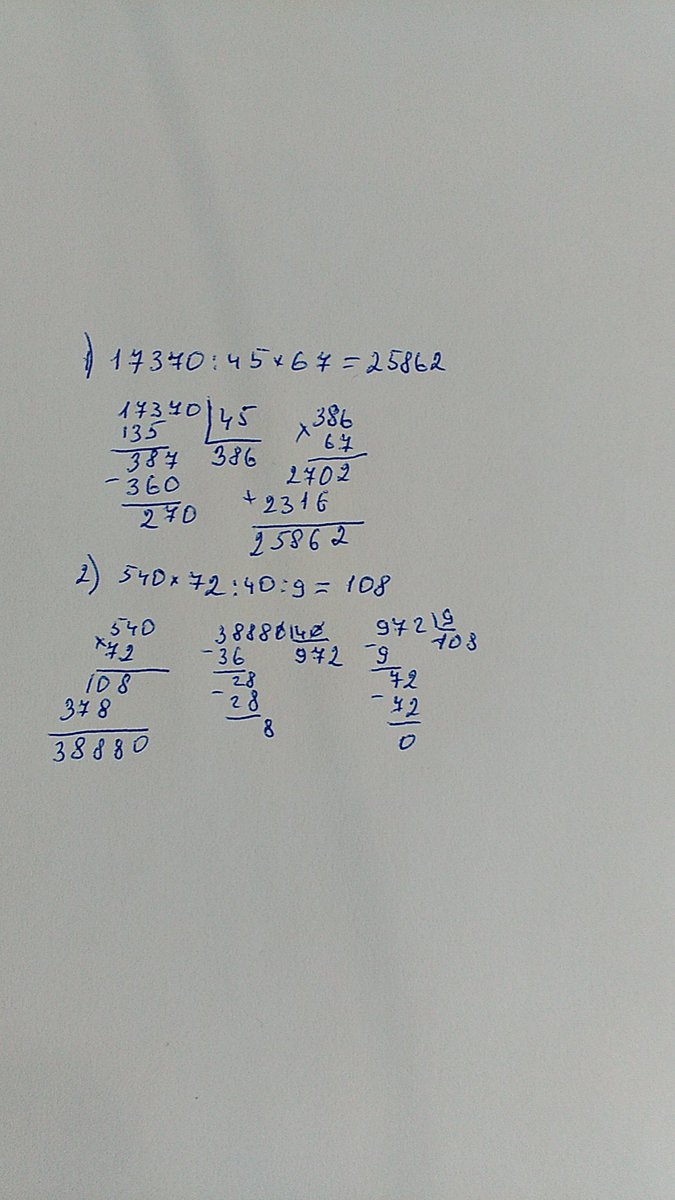 1) 17370:45×67=25862
17370 45
135 386
387
-360
270
×386
67
2702
+2316
25862
2) 540×72:40:9=108
×540
72
108
378
38880
38880 40
-36 972
28
-28
8
972 9
-9 108
72
-72
0